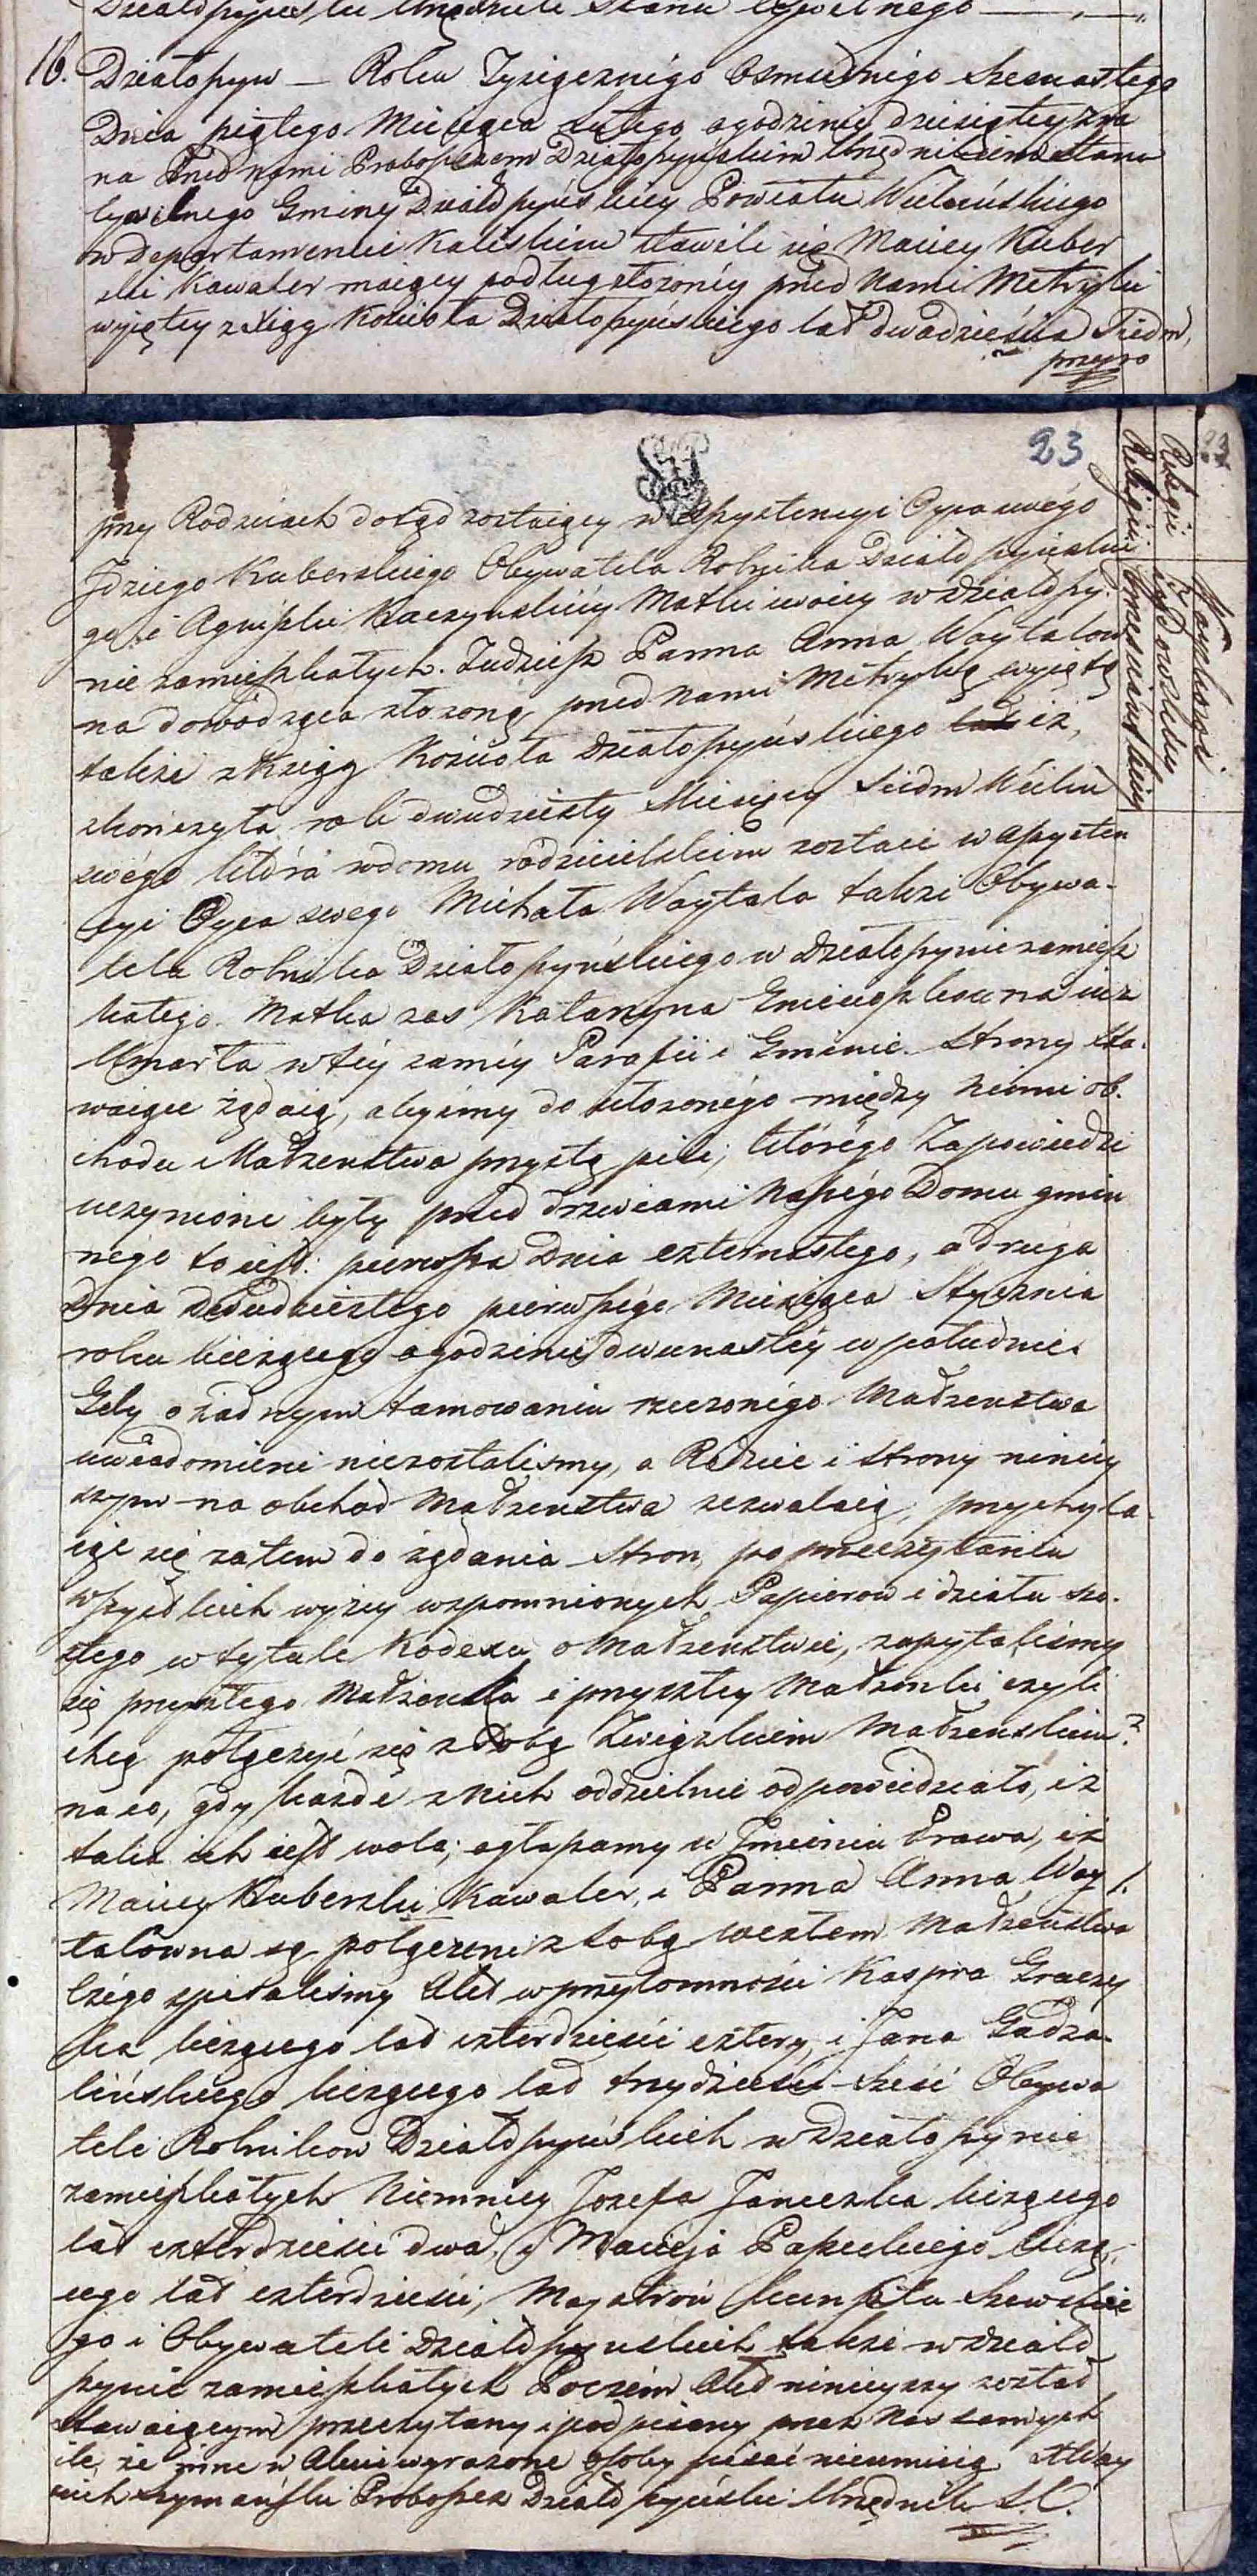 Działoszyński Urzędnik Stanu Cywilnego
16. Działoszyn — Roku Tysiącznégo Osmsetnégo Szesnastego
Dnia piątego Miesiąca Lutego o godzinie dziesiątey zra
na Przed nami Proboszczem Działoszyńskim Urzędnikiem Stanu
Cywilnego Gminy Działoszyńskiey Powiatu Wieluńskiego
w Departamencie Kaliskim stawili się Maciey Kuber
ski Kawaler maiący podług złożonéy przed Nami Metryki
wyiętey z Xiąg Kościoła Działoszyńskiego lat dwadzieścia Siedm,
przyro
23
przy Rodzicach dotąd zostaiący w Assystencyi Oyca swégo
Jdziego Kuberskiego Obywatela Rolnika Działoszyńskie
go i Agniszki Kaczynskiéy Matki swoiey w Działoszy
nie zamieszkałych. Tudziesz Panna Anna Waytalow
na dowodząca złozoną przed Nami Metryką wyiętą
takze z Ksiąg Kościoła Działoszyńskiego iż,
skonczyła rok dwudziesty Miesięcy Siedm Wieku
swégo która w domu rodzicielskim zostaie w assysten
cyi Oyca swego Michała Waytala także Obywa-
tela Rolnika Działoszyńskiego w Działoszynie zamiesz
kałego. Matka zas Katarzyna iuż
Umarła w téy saméy Parafii i Gminie. Strony Sta-
waiące żądaią, abyśmy do ułożonégo między niemi ob-
chodu Małżenstwa przystąpili; którégo Zapowiedzi
uczynione były przed drzwiami Naszégo Domu gmin
négo to iest: pierwsza Dnia czternastego, a druga
Dnia Dwudziestego pierwszégo Miesiąca Stycznia
roku bieżącego o godzinie dwunastéy w południe.
Gdy o żadnym tamowaniu rzeczonégo Małżenstwa
uwiadomieni niezostalismy, a Rodzice i Strony niniey
szym na obchod Małżenstwa zezwalaią, przychyla-
iąc się zatem do żądania Stron, po przeczytaniu
wszystkich wyżey wspomnionych Papierow i działu szo-
stego w tytule Kodexu o Małżenstwie, zapytaliśmy
się przyszłego Małżonka i przyszłey Małżonki czyli
chcą połączyć się z Sobą Związkiem Małżenskim?
na co, gdy każde z Nich oddzielnie odpowiedziało, iż
taka ich iest wola; ogłaszamy w Jmieniu Prawa, iż
Maciey Kuberski Kawaler, i Panna Anna Way
talowna są połączeni z sobą węzłem Małżeństwa
czégo spisaliśmy Akt w przytomności Kaspra Graczy
ka liczącego lat czterdzieści cztery, i Jana Gadza-
lińskiego liczącego lat trzydzieści sześć Obywa
teli Rolnikow Działoszyńskich w Działoszynie
zamieszkałych Niemniey Jozefa Janeczka liczącego
lat czterdzieści dwa, i Macieja Papuckiego liczą-
cego lat czterdzieści, Maystrow kunsztu Szewskie
go i Obywateli Działoszynskich także w Działo
szynie zamieszkałych Poczém Akt ninieyszy został
Stawaiącym przeczytany i podpisany przez Nas samych
ile, że jnne w Akcie wyrażone osoby pisać nieumieią
Szymański Proboszcz Działoszyński Urzędnik S.C.
Religii
Religii Chrześciańskiey
Żydowskiey